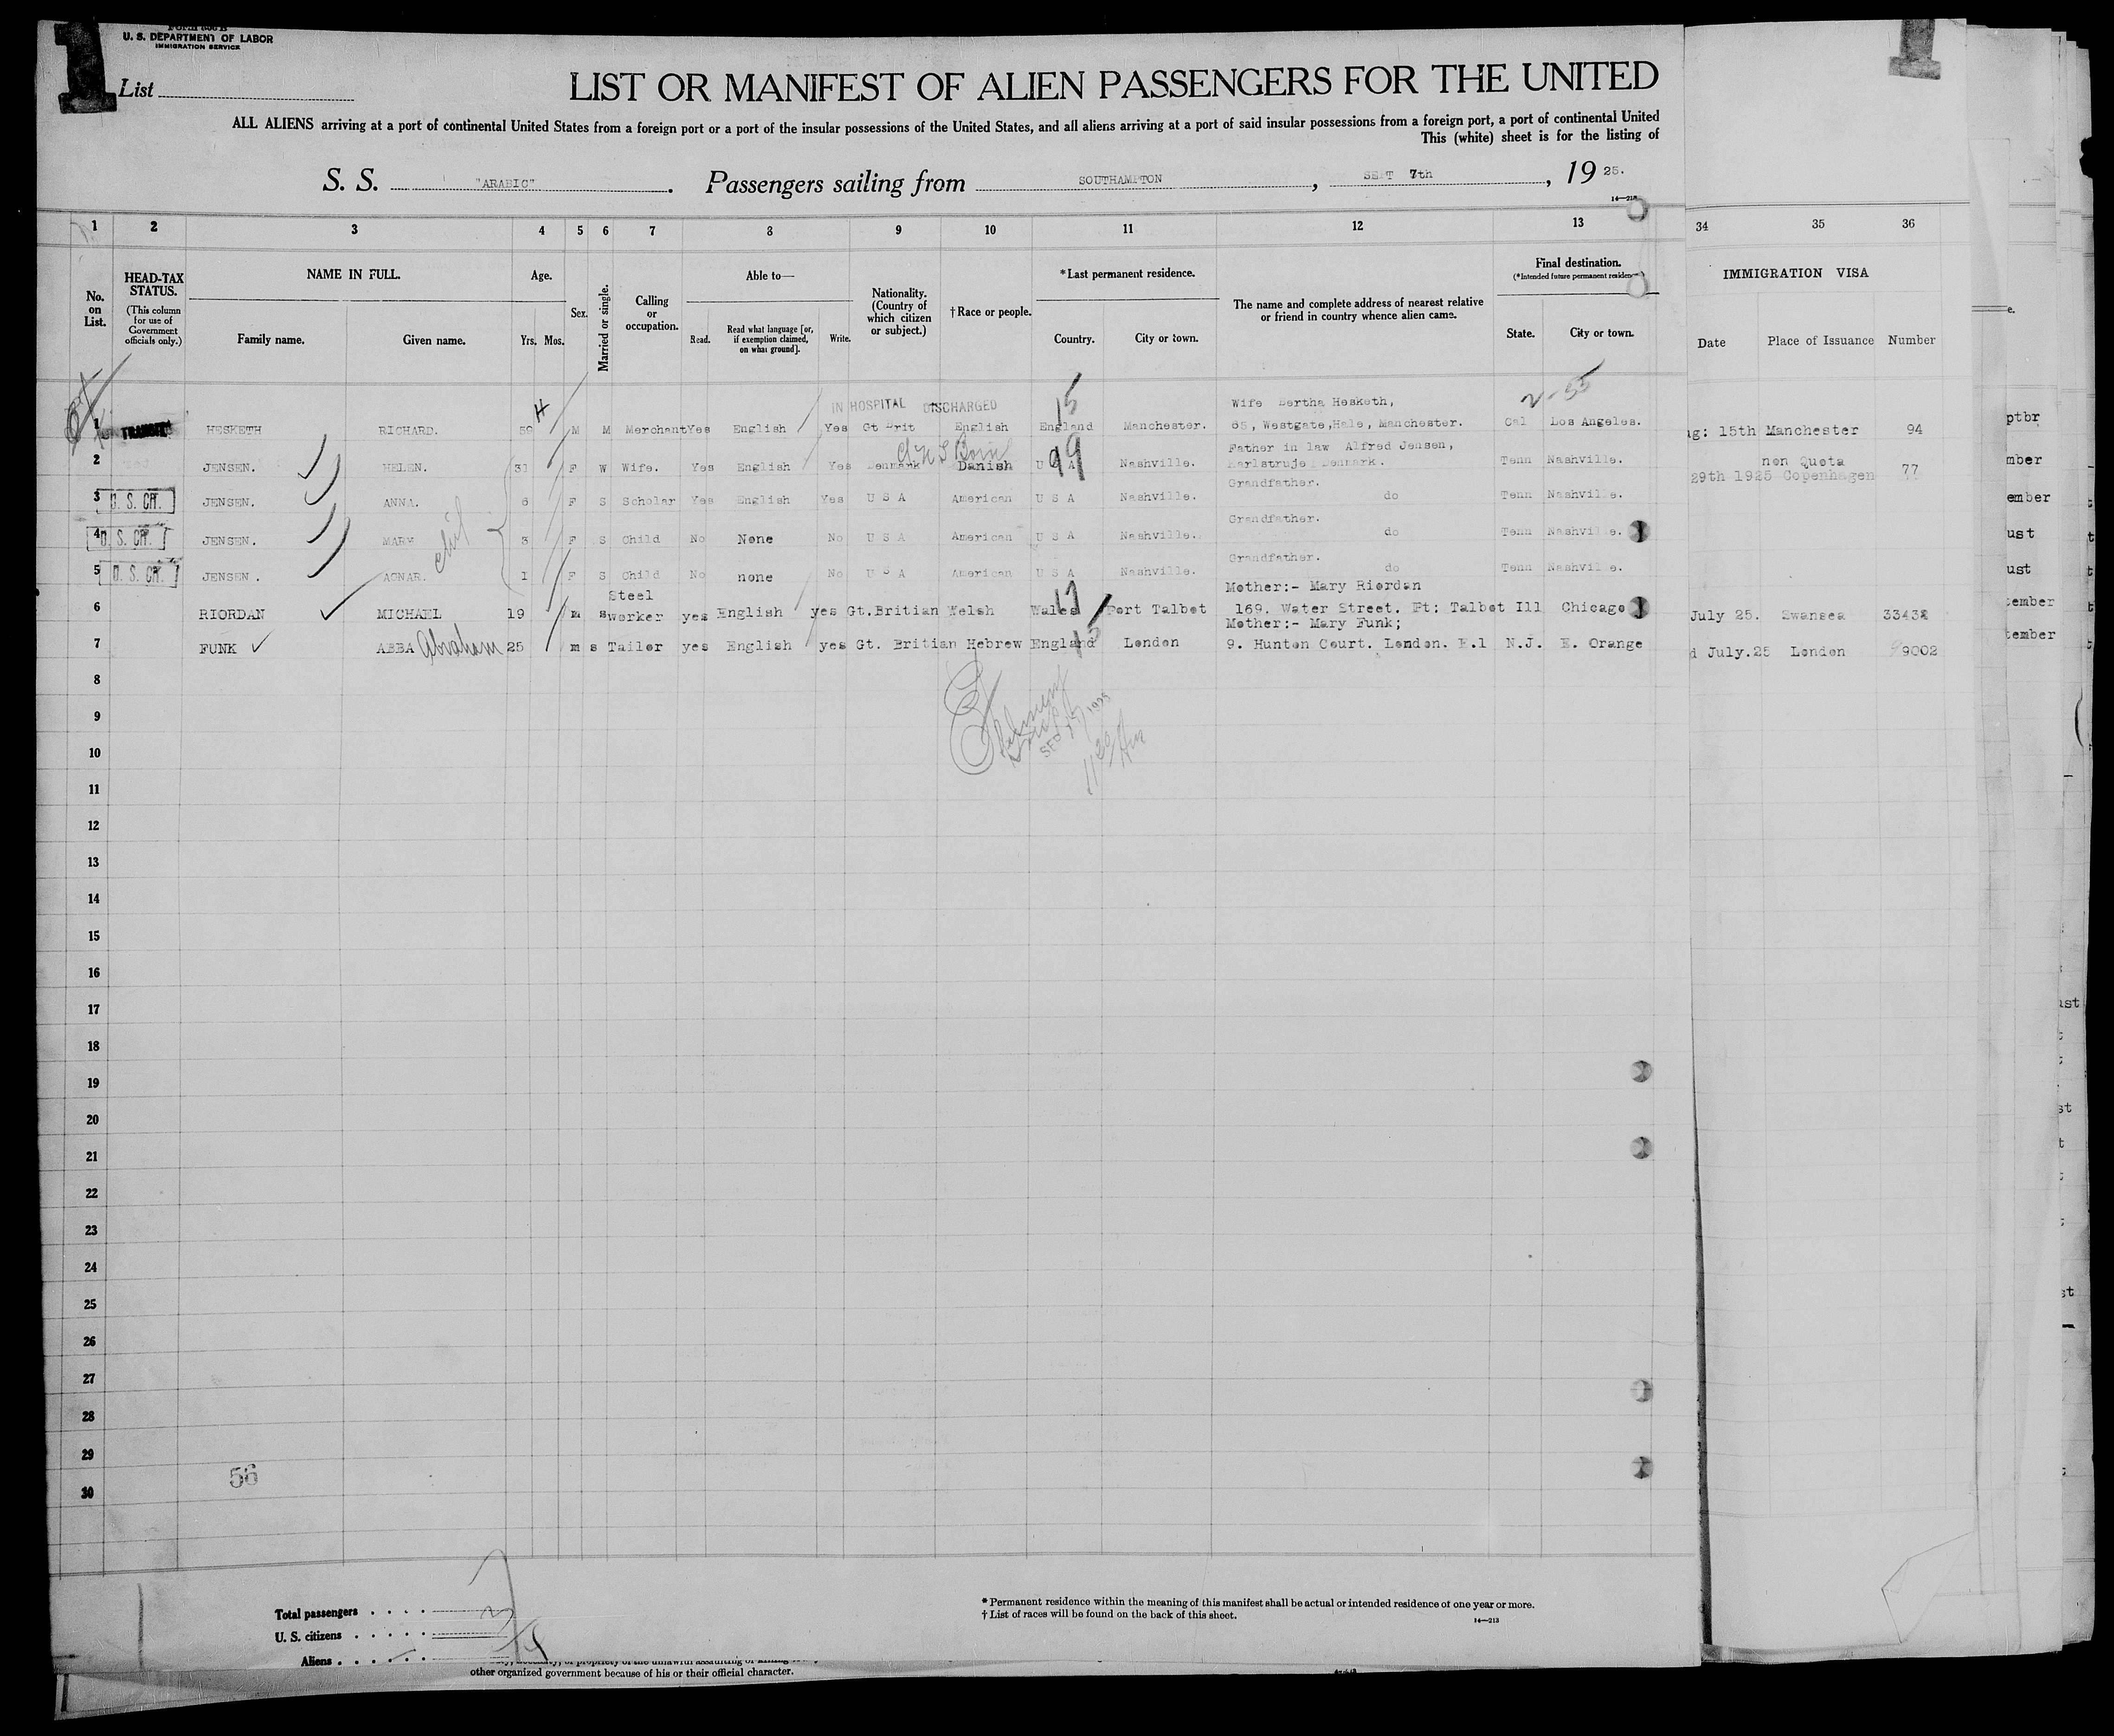 U. S. DEPARTMENT OF LABOR
IMMIGRATION SERVICE
1
List
LIST OR MANIFEST OF ALIEN PASSENGERS FOR THE UNITED
ALL ALIENS arriving at a port of continental United States from a foreign port or a port of the insular possessions of the United States, and all aliens arriving at a port of said insular possessions from a foreign port, a port of continental United
This (white) sheet is for the listing of
S. S. "ARABIC". Passengers sailing from SOUTHAMPTON, SEPT 7th, 1925.
1 2 3 4 5 6 7 8 9 10 11 12 13 34 35 36
No. on List.
HEAD-TAX STATUS.
(This column for use of Government officials only.)
NAME IN FULL.
Family name. Given name.
Age.
Yrs. Mos.
Sex.
Married or single.
Calling or occupation.
Able to—
Read. Read what language [or, if exemption claimed, on what ground]. Write.
Nationality. (Country of which citizen or subject.)
†Race or people.
*Last permanent residence.
Country. City or town.
The name and complete address of nearest relative or friend in country whence alien came.
Final destination.
(*Intended future permanent residence)
State. City or town.
IMMIGRATION VISA
Date Place of Issuance Number
IN HOSPITAL DISCHARGED 15 2-55
Wife Bertha Hesketh,
1 TRANSIT HESKETH RICHARD. 59 M M Merchant Yes English Yes Gt Brit English England Manchester. 65, Westgate, Hale, Manchester. Cal Los Angeles. ug: 15th Manchester 94
Father in law Alfred Jensen,
2 JENSEN. HELEN. 31 F W Wife. Yes English Yes Denmark Danish U S A 99 Nashville. Karlstruje Denmark. Tenn Nashville. 29th 1925 non Quota Copenhagen 77
Grandfather.
3 U. S. CIT. JENSEN. ANNA. 6 F S Scholar Yes English Yes U S A American U S A Nashville. do Tenn Nashville.
Grandfather.
4 U. S. CIT. JENSEN. MARY 3 F S Child No None No U S A American U S A Nashville. do Tenn Nashville.
Grandfather.
5 U. S. CIT. JENSEN. AGNAR. 1 F S Child No none No U S A American U S A Nashville. do Tenn Nashville.
Mother:- Mary Riordan
6 RIORDAN MICHAEL 19 m s Steel worker yes English yes Gt.Britian Welsh Wales 17 Port Talbot 169. Water Street. Pt: Talbot Ill Chicago July 25. Swansea 33432
Mother:- Mary Funk;
7 FUNK ABBA Abraham 25 m s Tailor yes English yes Gt. Britian Hebrew England 15 London 9. Hunton Court. London. E.1 N.J. E. Orange d July.25 London 9002
8
9
10
11
12
13
14
15
16
17
18
19
20
21
22
23
24
25
26
27
28
29
30
56
Total passengers
U. S. citizens
Aliens
* Permanent residence within the meaning of this manifest shall be actual or intended residence of one year or more.
† List of races will be found on the back of this sheet.
14—213
other organized government because of his or their official character.